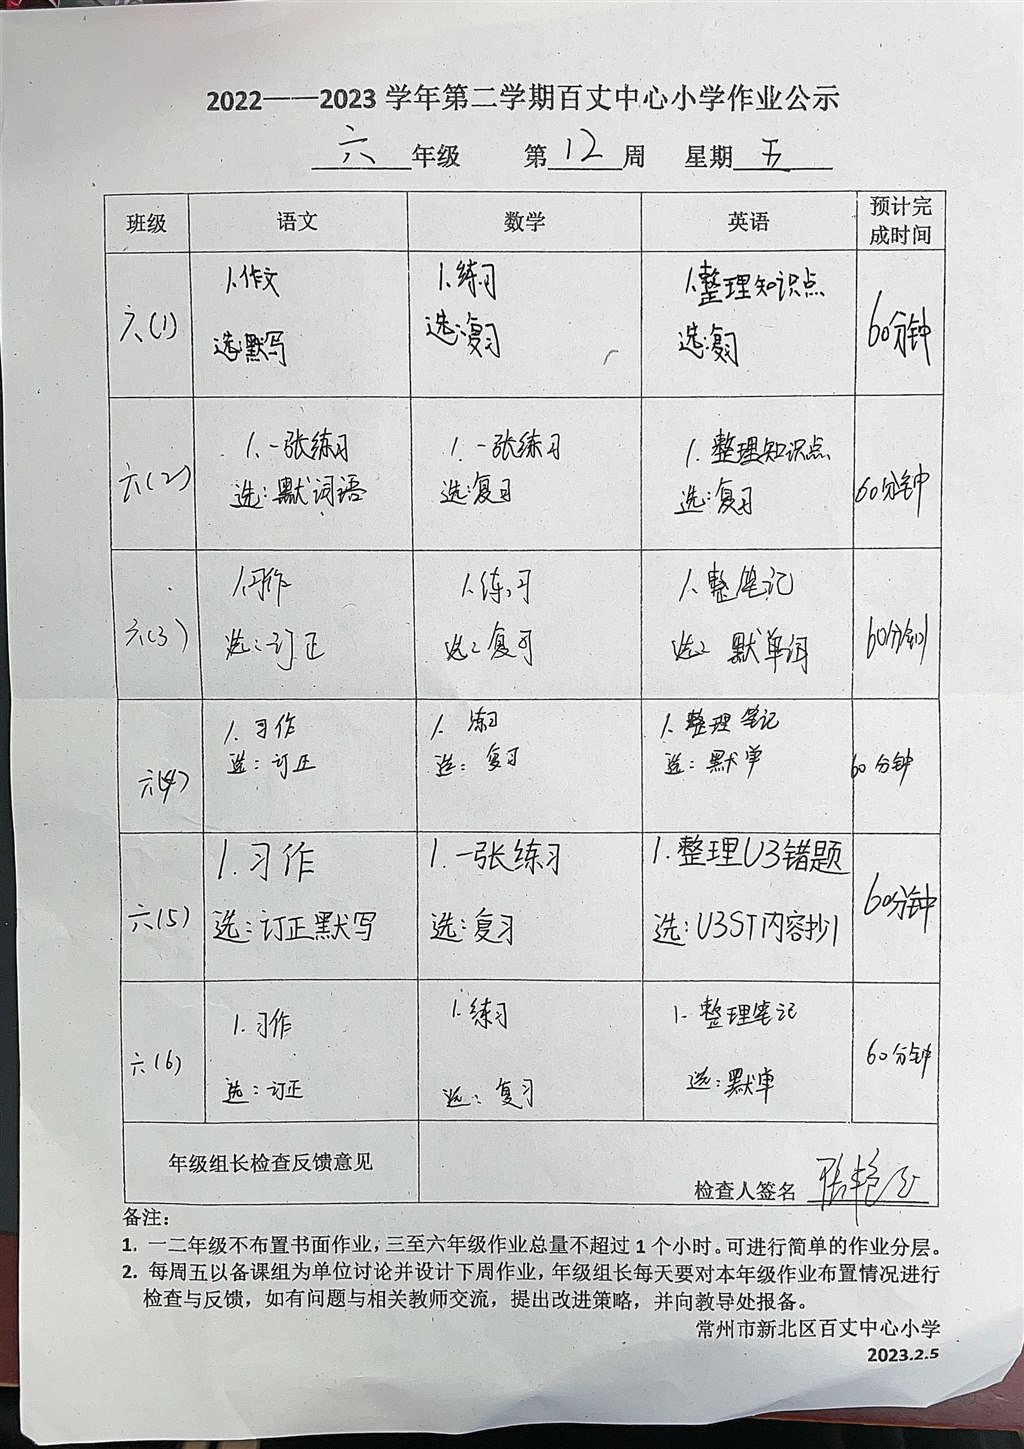 2022——2023学年第二学期百丈中心小学作业公示
六 年级 第 12 周 星期 五
班级 语文 数学 英语 预计完成时间
六(1)
1.作文
选:默写
1.练习
选:复习
1.整理知识点
选:复习
60分钟
六(2)
1.一张练习
选:默词语
1.一张练习
选:复习
1.整理知识点
选:复习
60分钟
六(3)
1.习作
选:订正
1.练习
选:复习
1.整笔记
选:默单词
60分钟
六(4)
1.习作
选:订正
1.练习
选:复习
1.整理笔记
选:默单
60分钟
六(5)
1.习作
选:订正默写
1.一张练习
选:复习
1.整理U3错题
选:U3ST内容抄1
60分钟
六(6)
1.习作
选:订正
1.练习
选:复习
1.整理笔记
选:默单
60分钟
年级组长检查反馈意见
检查人签名
备注:
1. 一二年级不布置书面作业,三至六年级作业总量不超过1个小时。可进行简单的作业分层。
2. 每周五以备课组为单位讨论并设计下周作业,年级组长每天要对本年级作业布置情况进行
检查与反馈,如有问题与相关教师交流,提出改进策略,并向教导处报备。
常州市新北区百丈中心小学
2023.2.5